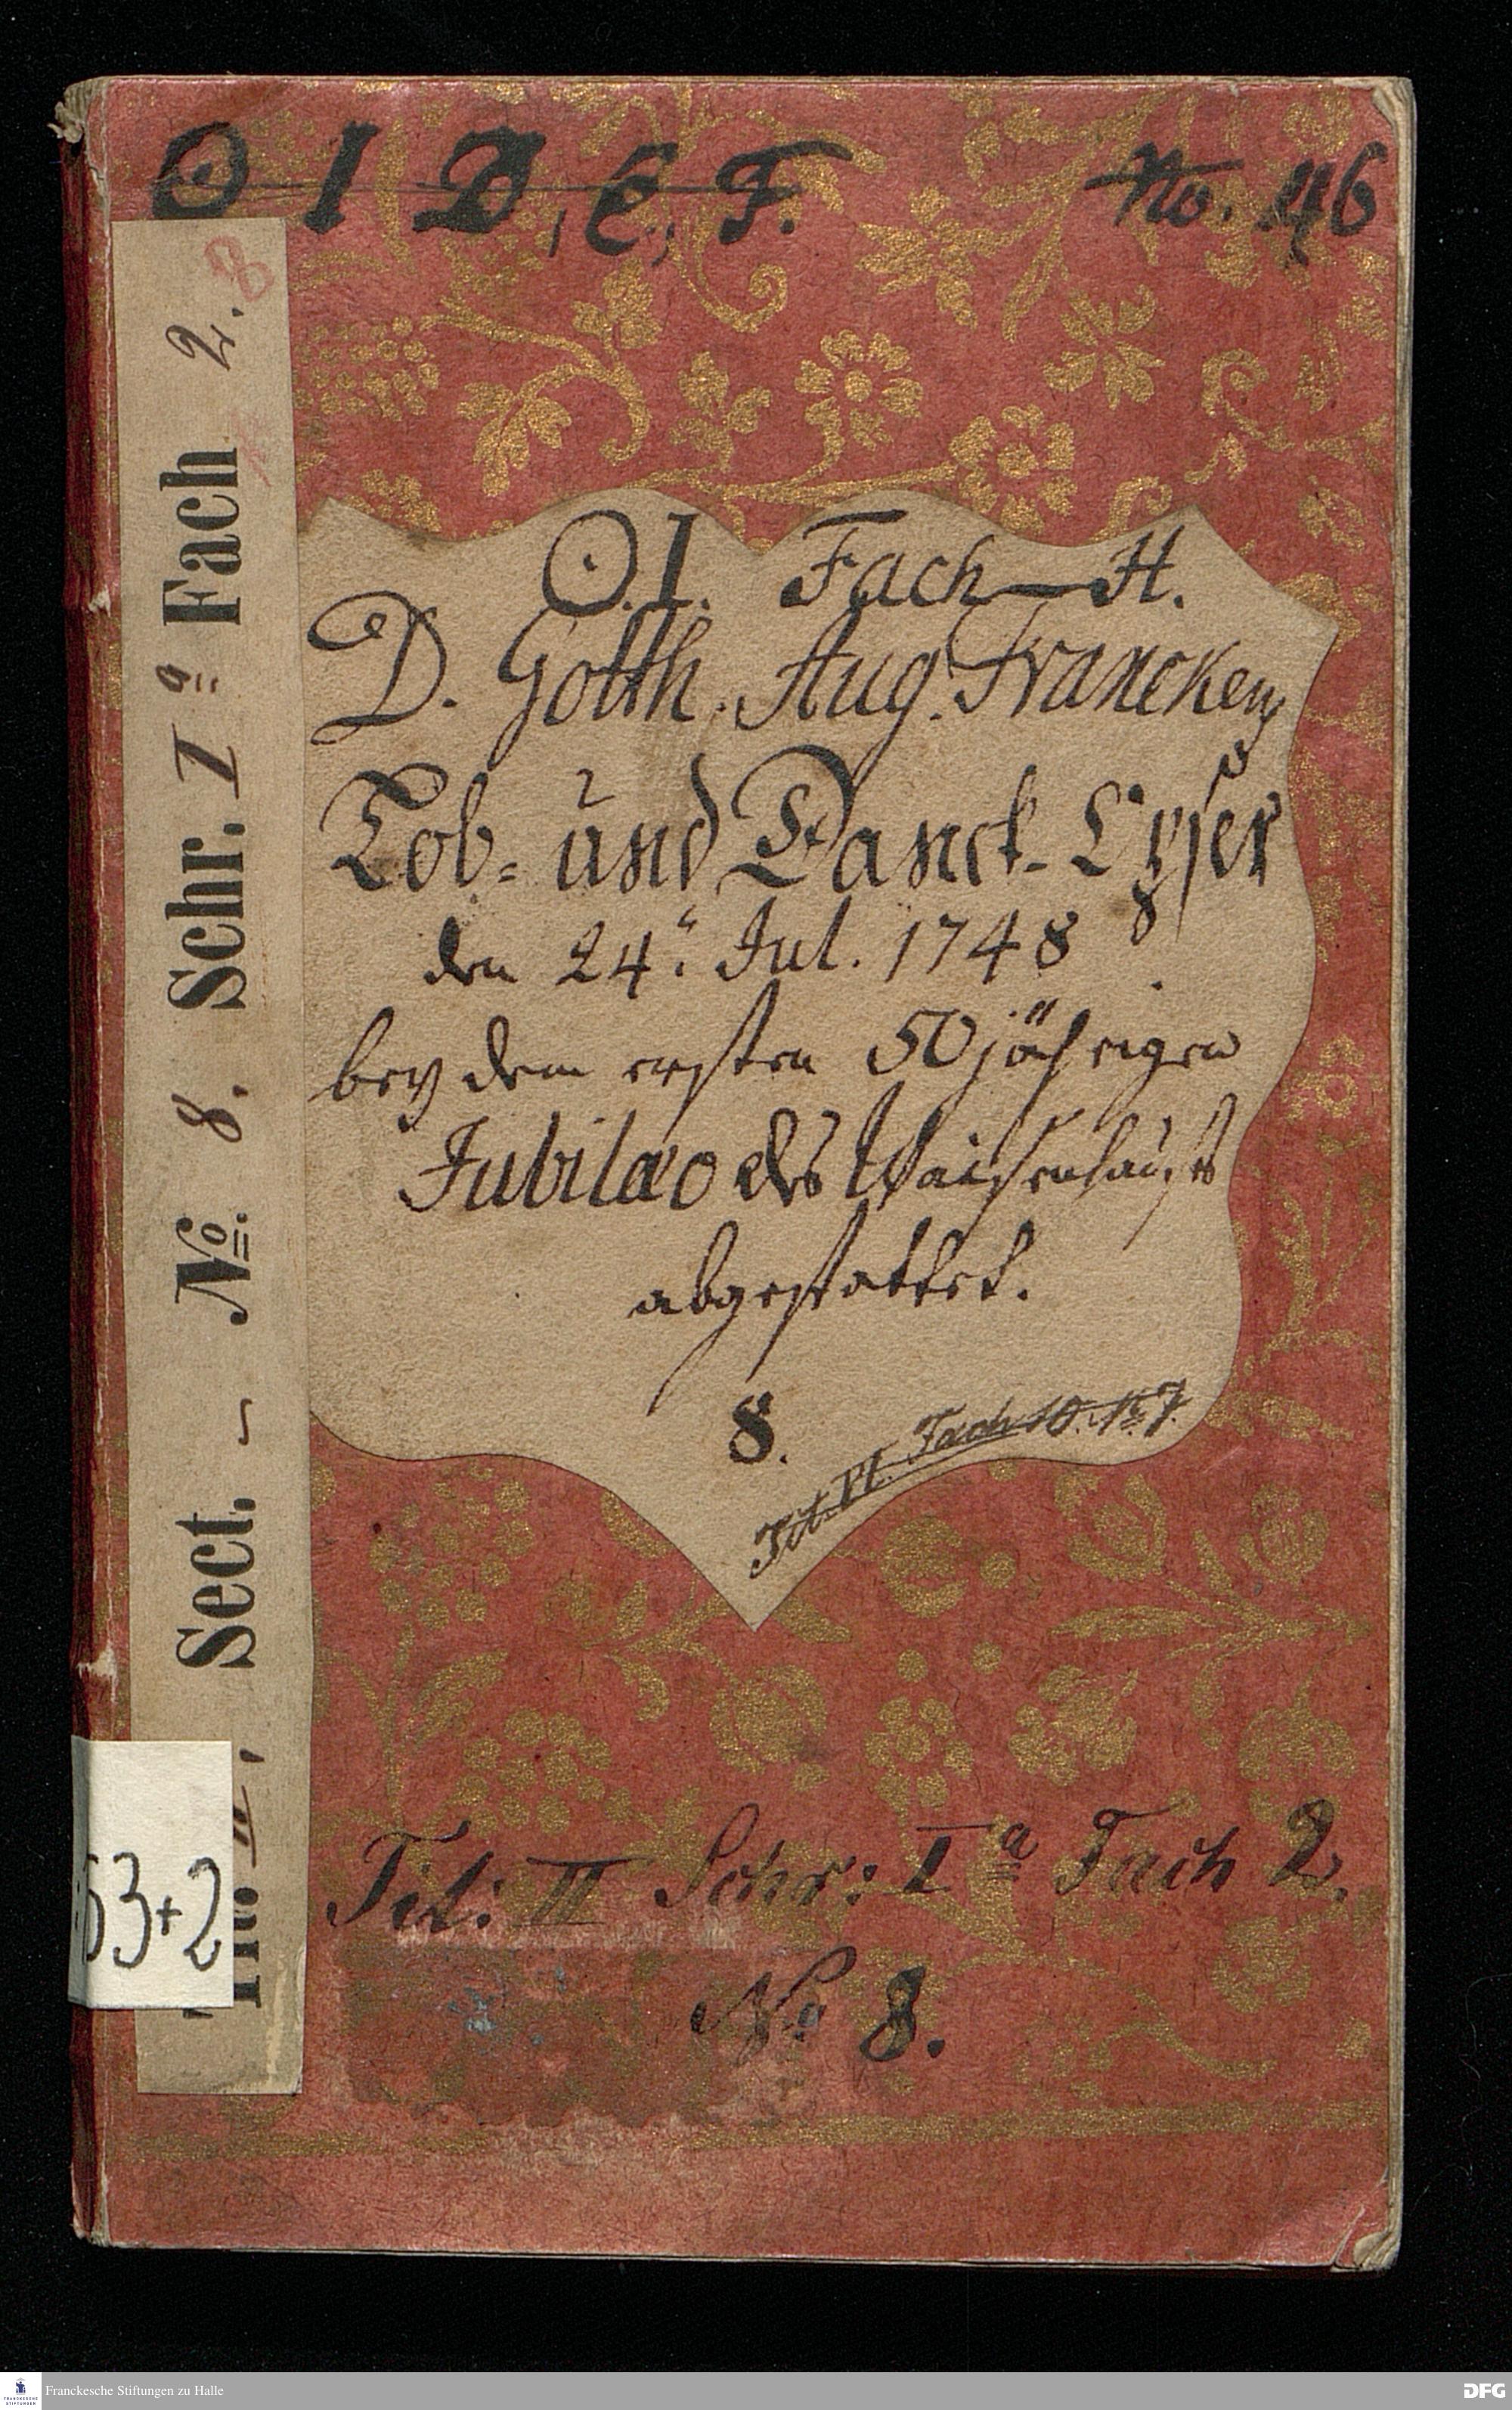 O I D, E, F.
No. 46
O.I. Fach H.
D. Gotth. Aug. Franckens
Lob- und Danck-Opfer
den 24. Jul. 1748
bey dem ersten 50jährigen
Jubilæo des Waisenhauses
abgestattet.
8.
Tit. VI. Fach 10. No 7.
Tit: III Schr: I a Fach 2.
No 8.
Sect. – No. 8. Schr. I a Fach 2.
8
53+2
Franckesche Stiftungen zu Halle
DFG